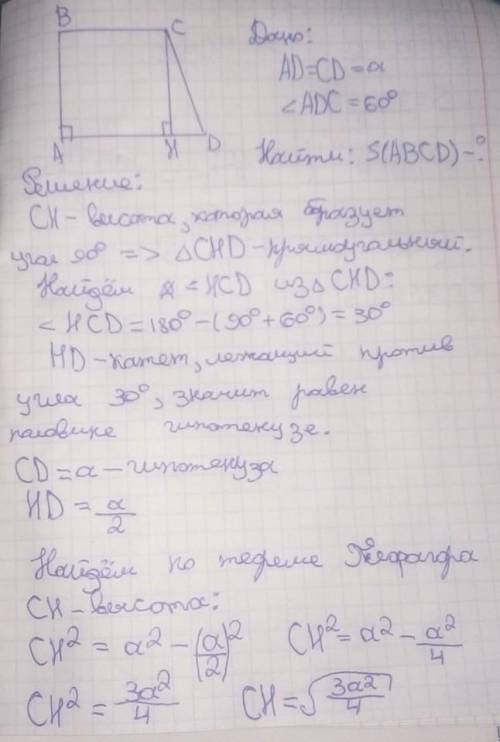 B C
A H D
Дано:
AD=CD=a
∠ADC=60°
Найти: S(ABCD)-?
Решение:
CH-высота, которая образует
угол 90° => △CHD-прямоугольный.
Найдём ∠HCD из △CHD:
∠HCD=180°-(90°+60°)=30°
HD-катет, лежащий против
угла 30°, значит равен
половине гипотенузе.
CD=a-гипотенуза
HD=a/2
Найдём по теореме Пифагора
CH-высота:
CH²=a²-(a/2)² CH²=a²-a²/4
CH²=3a²/4 CH=√(3a²/4)